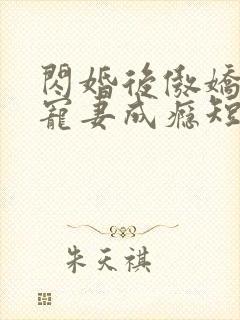 閃婚後傲嬌
寵妻成癮短
朱天祺